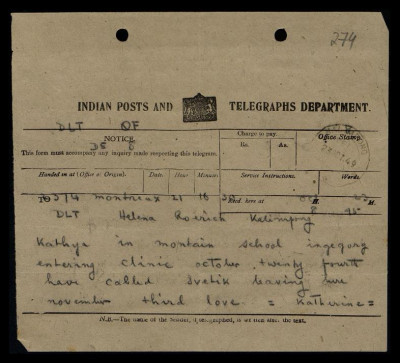 274
INDIAN POSTS AND TELEGRAPHS DEPARTMENT.
DLT OF
NOTICE
This form must accompany any inquiry made respecting this telegram.
Charge to pay.
Rs. As.
Office Stamp.
Handed in at (Office of Origin). Date. Hour. Minute. Service Instructions. Words.
montreux 21 16 30 Recd. here at H.
DLT Helena Roerich Kalimpong
Kathya in montain school ingegorg
entering clinic october twenty fourth
have called Svetik leaving
november third love = Katherine =
N.B.—The name of the Sender, if telegraphed, is written after the text.